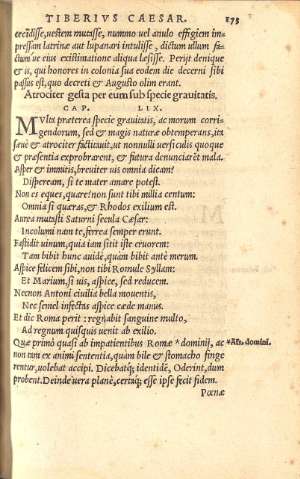 TIBERIVS CAESAR. 175
cecidisse, uestem mutasse, nummo uel anulo effigiem im-
pressam latrinæ aut lupanari intulisse, dictum ullum fa-
ctum´ue eius existimatione aliqua læsisse. Perijt denique
& is, qui honores in colonia sua eodem die decerni sibi
passus est, quo decreti & Augusto olim erant.
Atrociter gesta per eum sub specie grauitatis.
CAP. LIX.
MVlta præterea specie grauitatis, ac morum corri-
gendorum, sed & magis naturæ obtemperans, ita
sæuè & atrociter factitauit, ut nonnulli uersiculis quoque
& præsentia exprobrarent, & futura denunciarẽt mala.
Asper & immitis, breuiter uis omnia dicam?
Dispeream, si te mater amare potest.
Non es eques, quare? non sunt tibi millia centum:
Omnia si quæras, & Rhodos exilium est.
Aurea mutasti Saturni secula Cæsar:
Incolumi nam te, ferrea semper erunt.
Fastidit uinum, quia iam sitit iste cruorem:
Tam bibit hunc auidè, quàm bibit antè merum.
Aspice felicem sibi, non tibi Romule Syllam:
Et Marium, si uis, aspice, sed reducem.
Necnon Antoni ciuilia bella mouentis,
Nec semel infectas aspice cæde manus.
Et dic Roma perit: regnabit sanguine multo,
Ad regnum quisquis uenit ab exilio.
Quæ primò quasi ab impatientibus Romæ *dominij, ac *Als. domini.
non tam ex animi sententia, quàm bile & stomacho finge
rentur, uolebat accipi. Dicebatq́; identidẽ, Oderint, dum
probent. Deinde uera planè, certaq́; esse ipse fecit fidem.
Pœnæ